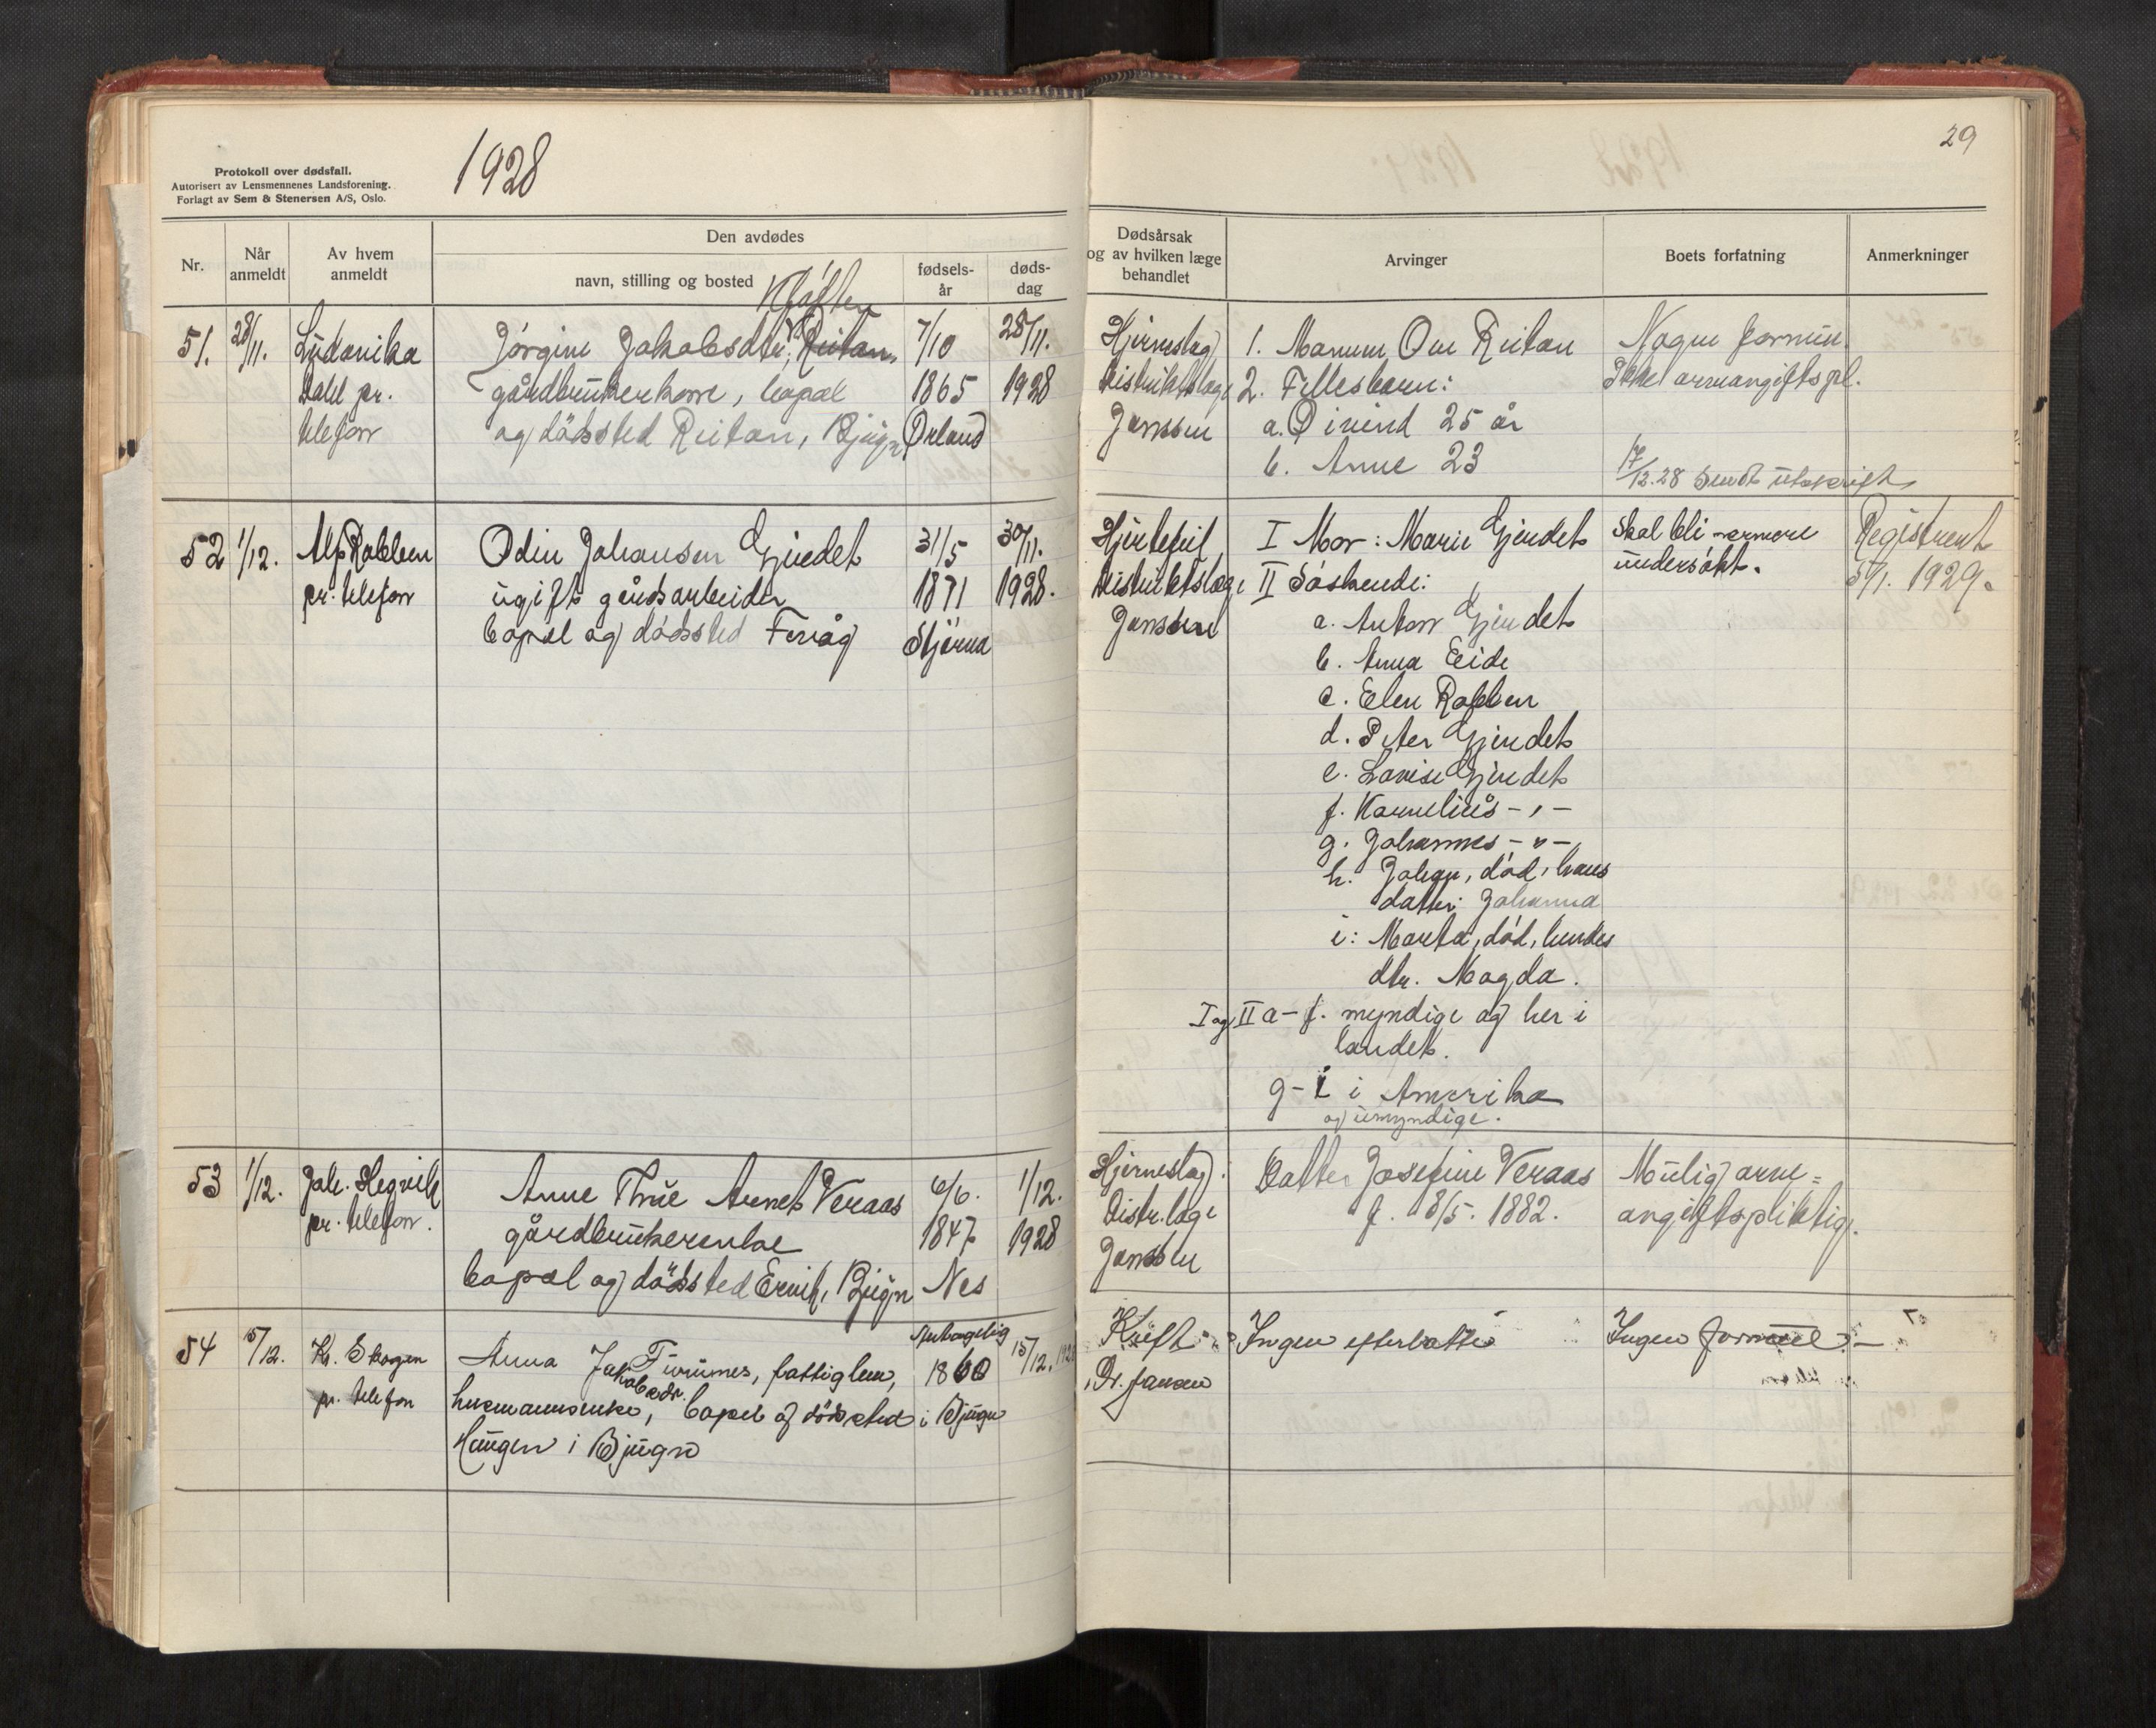 Protokoll over dødsfall.
Autorisert av Lensmennenes Landsforening.
Forlagt av Sem & Stenersen A/S, Oslo.
1928
Nr.
Når anmeldt
Av hvem anmeldt
Den avdødes
navn, stilling og bosted
fødsels-år
døds-dag
51. 28/11. Ludovika Jørgine Jakobsdtr. Reitan, 7/10 28/11.
Dahl pr. gårdbrukerkone, bopæl 1865 1928
telefon og dødssted Reitan, Bjugn Ørland
52 1/12. Alf Rabben Odin Johansen Gjendet 31/5 30/11.
pr. telefon ugift gårdsarbeider 1871 1928.
bopæl og dødssted Tervåg Stjørna
53 1/12. Joh. Hegvik Anne Thue Arnets Veraas 6/6. 1/12.
pr. telefon. gårdbrukerenke 1847 1928
bopæl og dødssted Ervik, Bjugn Nes
54 15/12. Kr. Skogen Anna Jakobsdr. Turumes, fattiglem, Antagelig 1860 15/12. 1928
pr. telefon husmannsenke, bopæl og dødssted i Bjugn
Haugen i Bjugn
29
Dødsårsak
og av hvilken læge
behandlet
Arvinger
Boets forfatning
Anmerkninger
Hjerneslag 1. Mannen Ove Reitan Nogen formue.
Distriktslæge 2. Fellesbarn: Ikke arveavgiftspl.
Janssen a. Øivind 25 år
b. Anne 23
17/12.28 Sendt utskrift
Hjertefeil I Mor: Marie Gjendet Skal bli nærmere Registrert
Distriktslæge II Søskende: undersøkt. 5/1. 1929.
Janssen a. Anton Gjendet
b. Anna Eide
c. Elen Rabben
d. Peter Gjendet
e. Lovise Gjendet
f. Kornelius - " -
g. Johannes - " -
h. Johan, død, hans
datter Johanna
i: Marta, død, hendes
dtr. Magda.
I og II a - f. myndige og her i
landet.
g - i i Amerika
og umyndige.
Hjerneslag: Datter Josefine Veraas Mulig arve=
Distr.læge f. 8/5. 1882. avgiftspliktig.
Janssen
Kreft Ingen efterlatte Ingen formue. -
Dr. Jansen